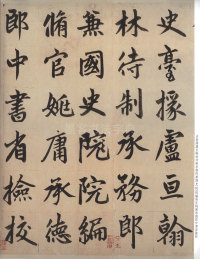 史臺掾盧亘翰
林待制承務郎
兼國史院編
脩官姚庸承德
郎中書省檢校